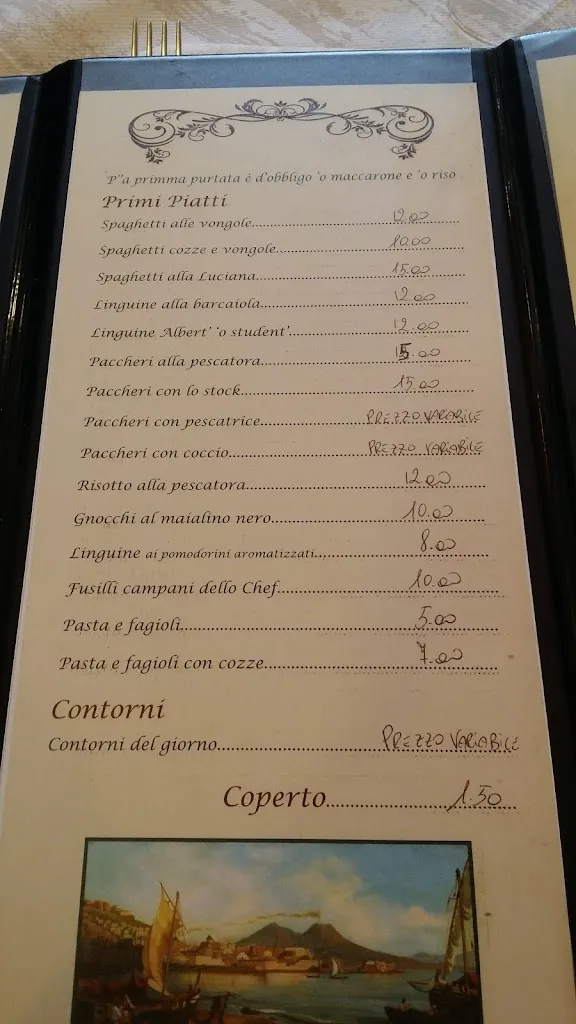 P''a primma purtata è d'obbligo 'o maccarone e 'o riso
Primi Piatti
Spaghetti alle vongole 12.00
Spaghetti cozze e vongole 10.00
Spaghetti alla Luciana 15.00
Linguine alla barcaiola 12.00
Linguine Albert' 'o student' 12.00
Paccheri alla pescatora 15.00
Paccheri con lo stock 15.00
Paccheri con pescatrice PREZZO VARIABILE
Paccheri con coccio PREZZO VARIABILE
Risotto alla pescatora 12.00
Gnocchi al maialino nero 10.00
Linguine ai pomodorini aromatizzati 8.00
Fusilli campani dello Chef 10.00
Pasta e fagioli 5.00
Pasta e fagioli con cozze 7.00
Contorni
Contorni del giorno PREZZO VARIABILE
Coperto 1.50